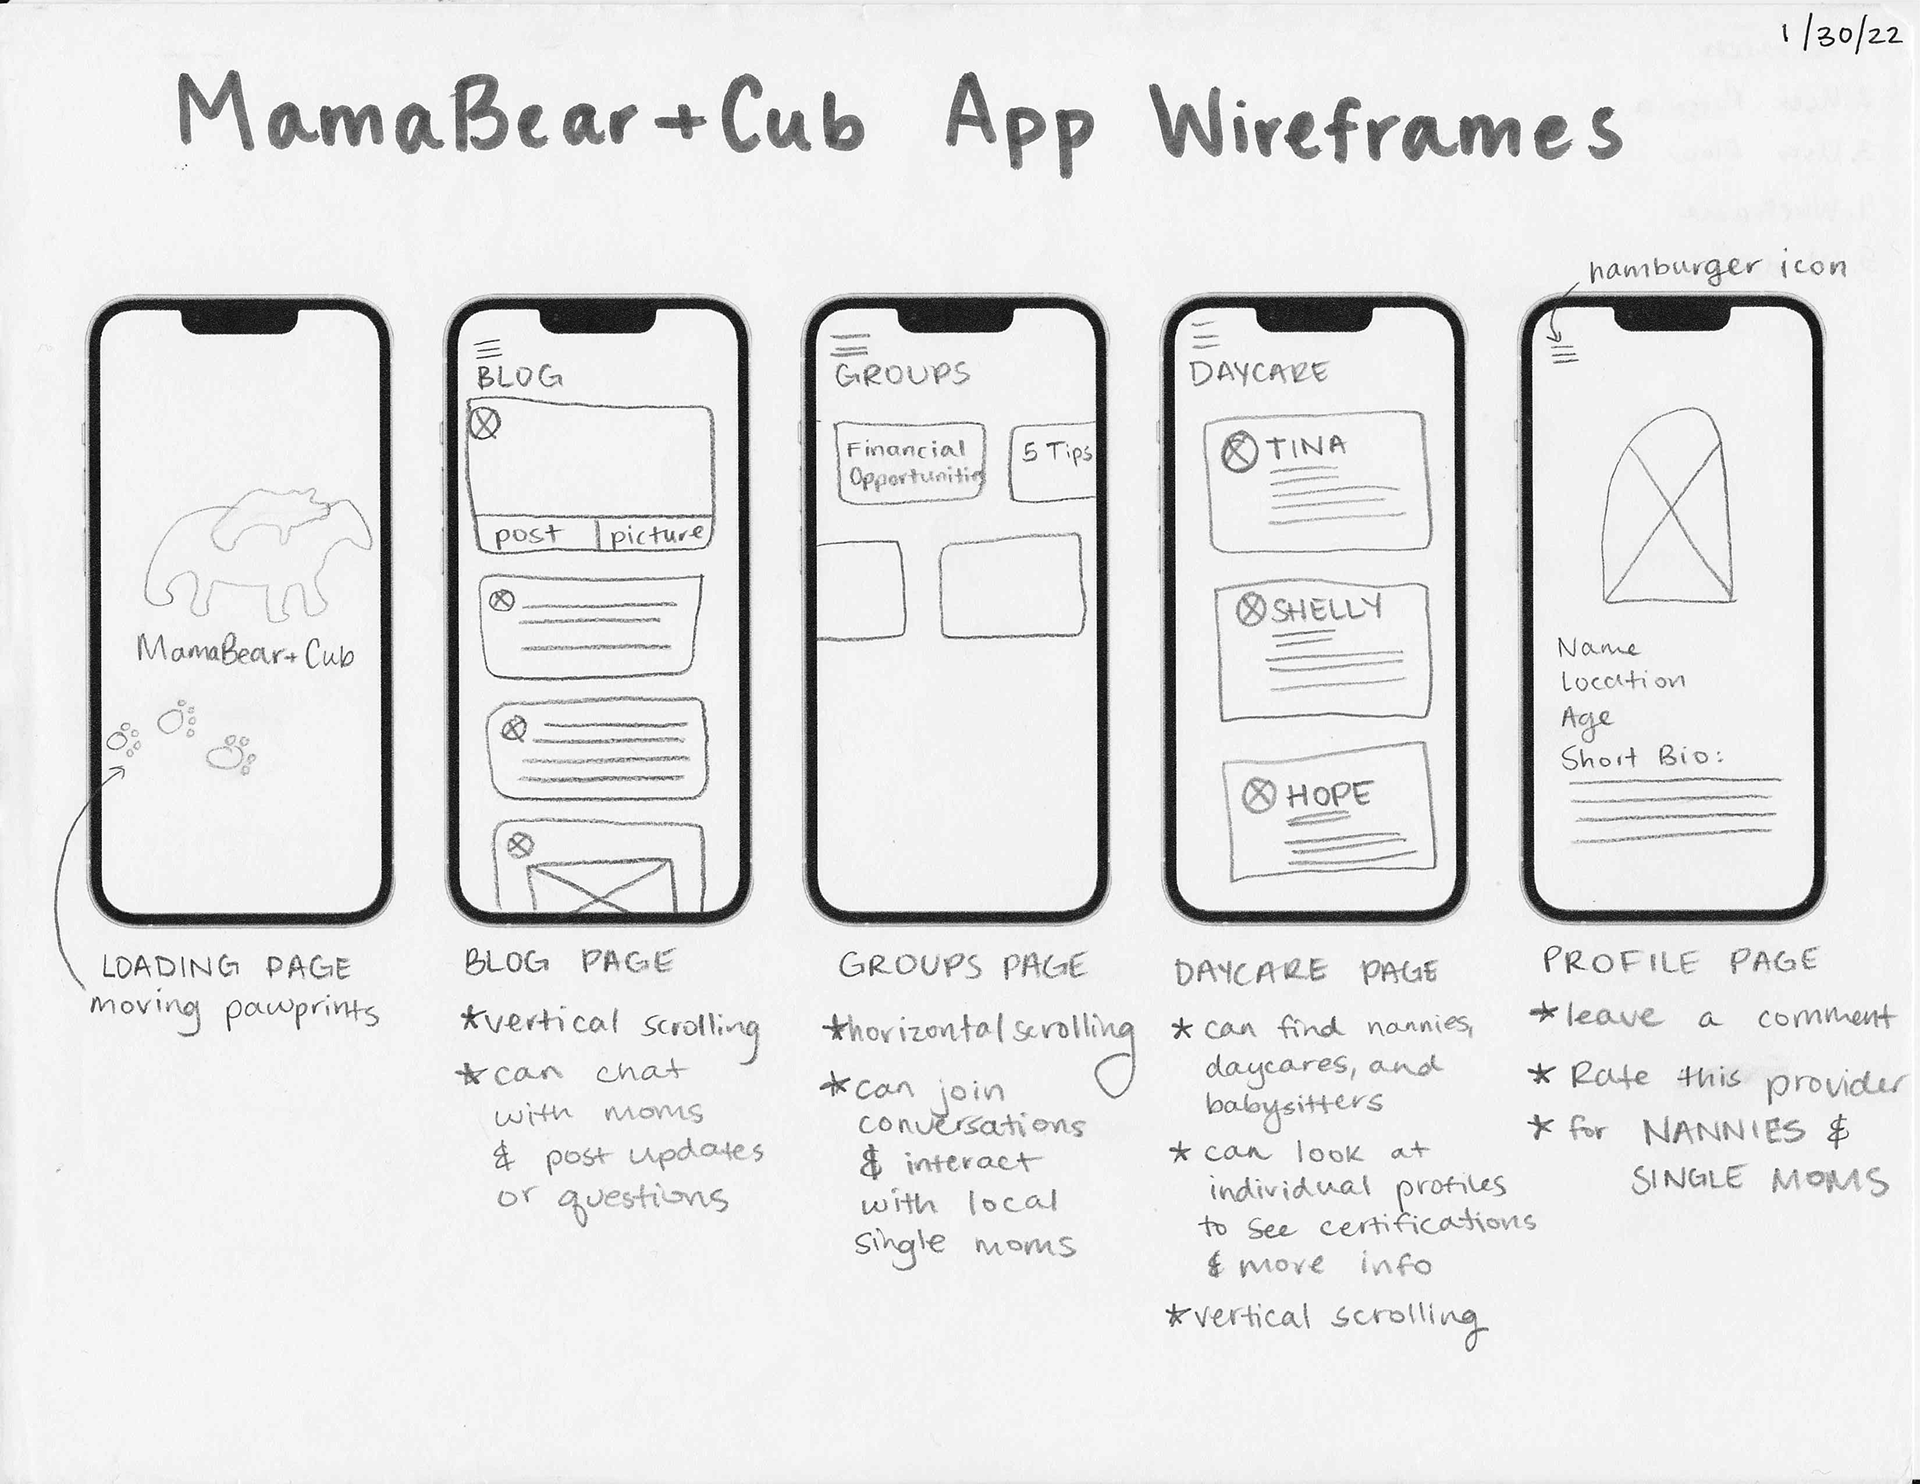 1/30/22
MamaBear+Cub App Wireframes
hamburger icon
MamaBear+Cub
LOADING PAGE
moving pawprints
BLOG
post
picture
BLOG PAGE
*vertical scrolling
*can chat
with moms
& post updates
or questions
GROUPS
Financial
Opportunitie
5 Tips
GROUPS PAGE
*horizontal scrolling
*can join
conversations
& interact
with local
single moms
DAYCARE
TINA
SHELLY
HOPE
DAYCARE PAGE
* can find nannies,
daycares, and
babysitters
* can look at
individual profiles
to see certifications
& more info
*vertical scrolling
Name
Location
Age
Short Bio:
PROFILE PAGE
*leave a comment
* Rate this provider
* for NANNIES &
SINGLE MOMS